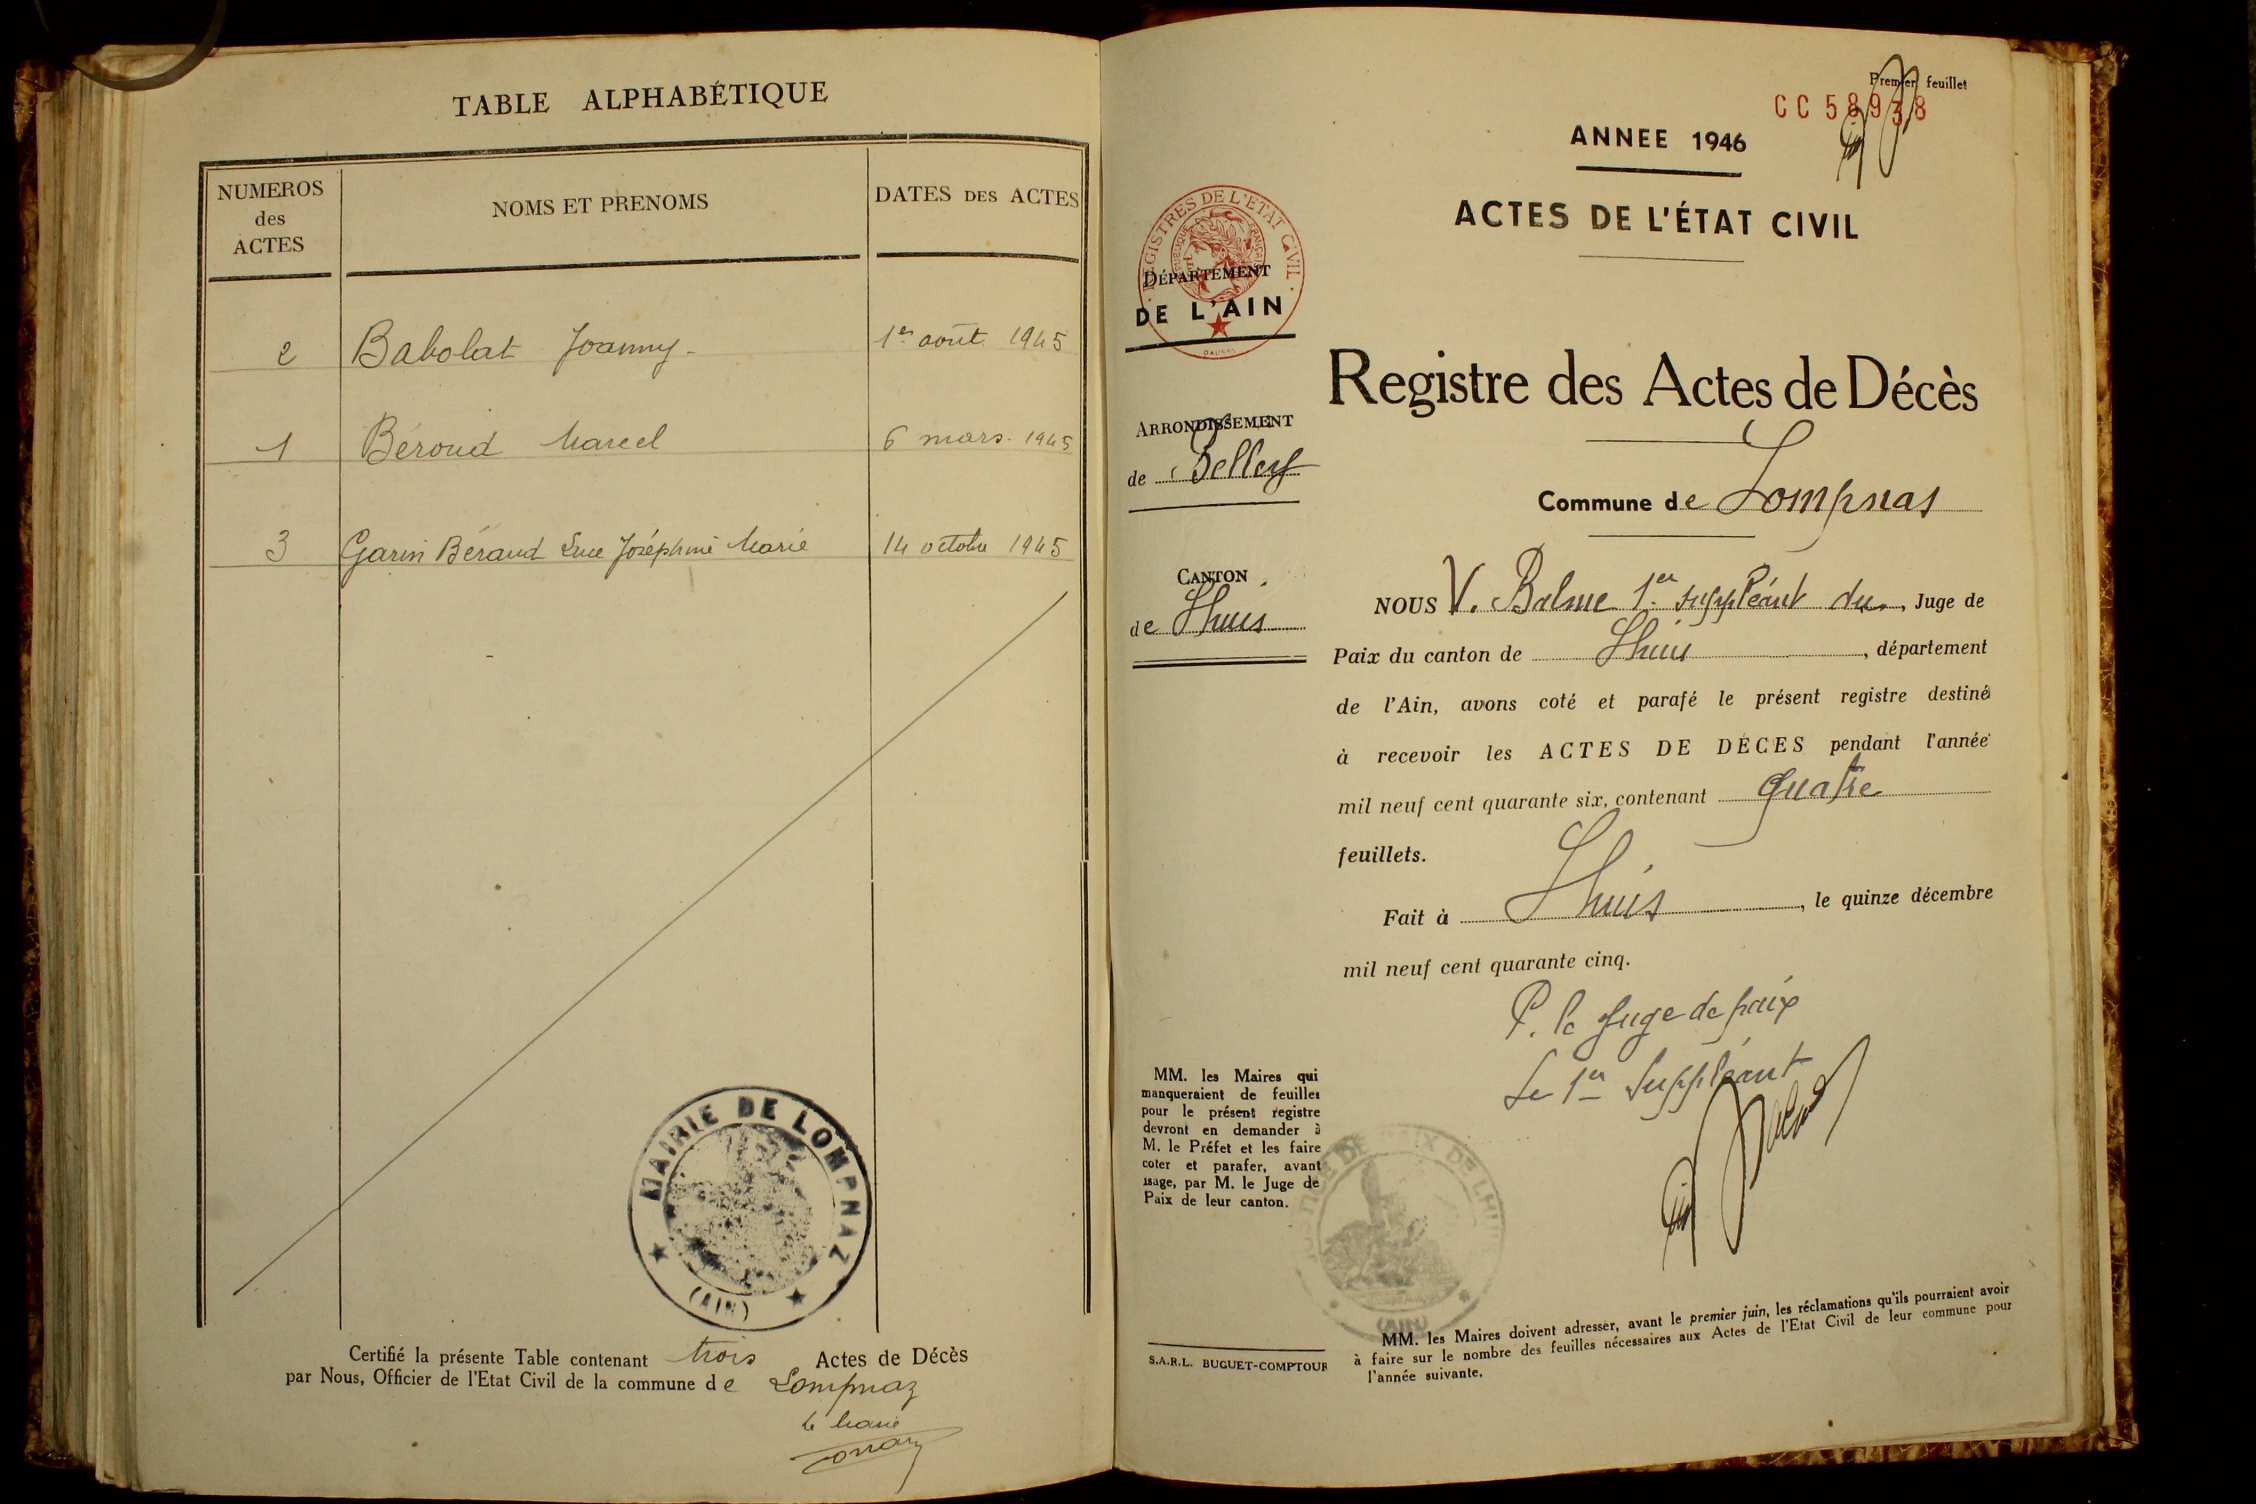 TABLE ALPHABÉTIQUE
NUMEROS des ACTES NOMS ET PRENOMS DATES DES ACTES
2 Babolat Joanny 1er août 1945
1 Béroud Marcel 6 mars 1945
3 Garin Béraud Luce Joséphine Marie 14 octobre 1945
MAIRIE DE LOMPNAZ
(AIN)
Certifié la présente Table contenant trois Actes de Décès
par Nous, Officier de l'Etat Civil de la commune de Lompnaz
le Maire
Premier feuillet
CC 58938
ANNEE 1946
ACTES DE L'ÉTAT CIVIL
REGISTRES DE L'ETAT CIVIL
REPUBLIQUE FRANÇAISE
DÉPARTEMENT
DE L'AIN
Registre des Actes de Décès
ARRONDISSEMENT
de Belley
Commune de Lompnas
CANTON
de Lhuis
NOUS V. Balme 1er suppléant du, Juge de
Paix du canton de Lhuis, département
de l'Ain, avons coté et parafé le présent registre destiné
à recevoir les ACTES DE DÉCES pendant l'année
mil neuf cent quarante six, contenant quatre
feuillets.
Fait à Lhuis, le quinze décembre
mil neuf cent quarante cinq.
P. le Juge de paix
Le 1er Suppléant
Balme
MM. les Maires qui
manqueraient de feuilles
pour le présent registre
devront en demander à
M. le Préfet et les faire
coter et parafer, avant
usage, par M. le Juge de
Paix de leur canton.
JUSTICE DE PAIX DE LHUIS
(AIN)
S.A.R.L. BUGUET-COMPTOUR
MM. les Maires doivent adresser, avant le premier juin, les réclamations qu'ils pourraient avoir
à faire sur le nombre des feuilles nécessaires aux Actes de l'Etat Civil de leur commune pour
l'année suivante.